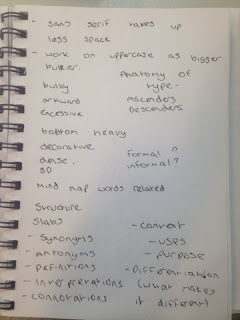 - sans serif takes up
less space
- work on uppercase as bigger
bulkier.
Anatomy of
type-
bulky
awkward
Ascenders
excessive
Descenders
bottom heavy
decorative
dense.
3D
formal?
informal?
Mind map words related
Structure
Slabs
- synonyms
- antonyms
- definitions
- interpretations
- connotations
- context
- uses
- purpose
- Differentiation
(what makes
it different)